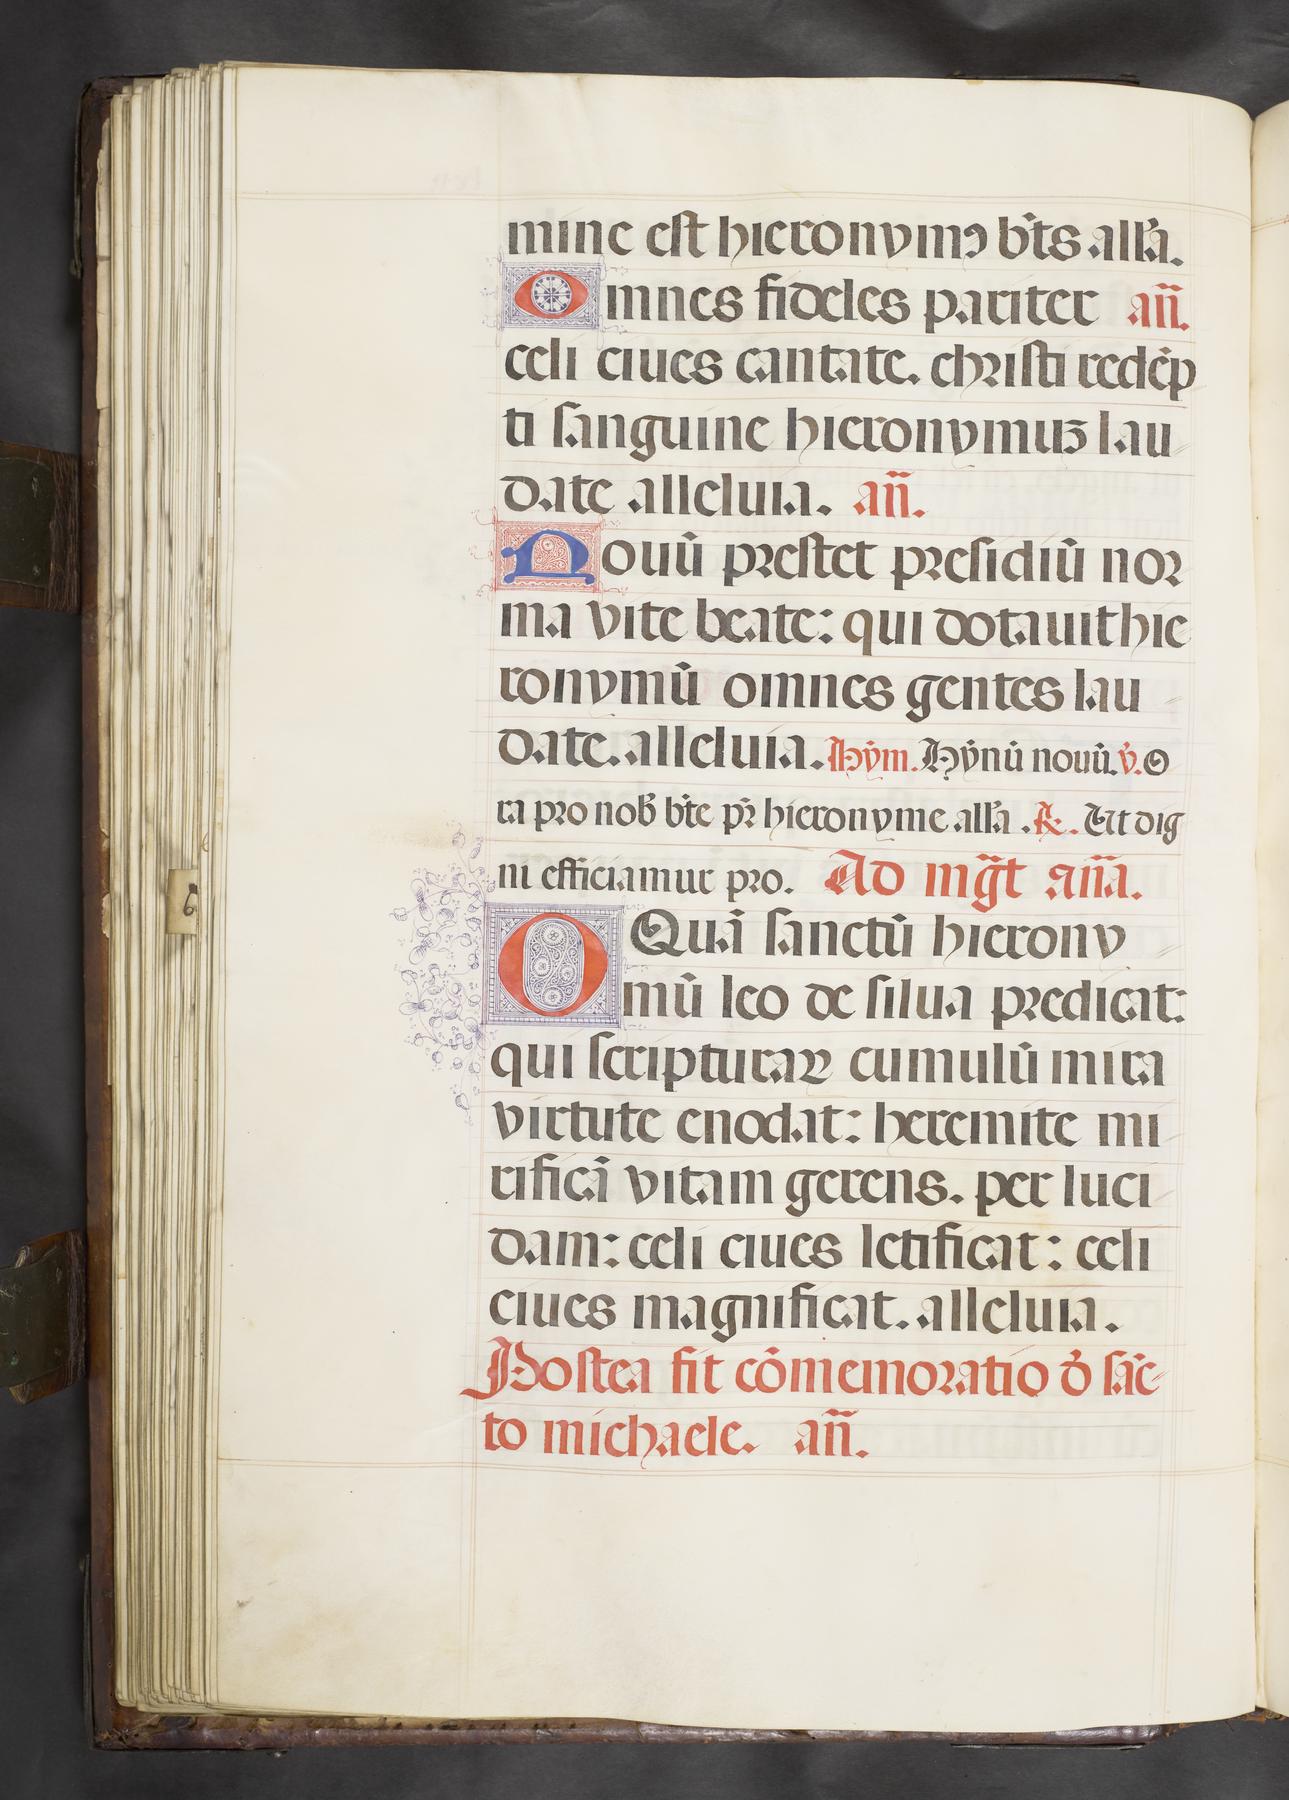 mine est hieronymꝯ bt̄s all'a.
Omnes fideles pariter an̄.
celi ciues cantate. christi redēp
ti sanguine hieronymus lau
date alleluia. an̄.
Nouū prestet presidiū nor
ma vite beate: qui dotauit hie
ronymū omnes gentes lau
date. alleluia. Hym̄. Hȳnū nouū. v̄. O
ra pro nob̄ bt̄e pr̄ hieronyme all'a. ℟. Ut dig
ni efficiamur pro. Ad mḡt an̄a.
O Quā sanctū hierony
mū leo de silua predicat:
qui scripturaꝝ cumulū mira
virtute enodat: heremite mi
rificā vitam gerens. per luci
dam: celi ciues letificat: celi
ciues magnificat. alleluia.
Postea fit cōmemoratio d̄ sāc
to michaele. an̄.
6